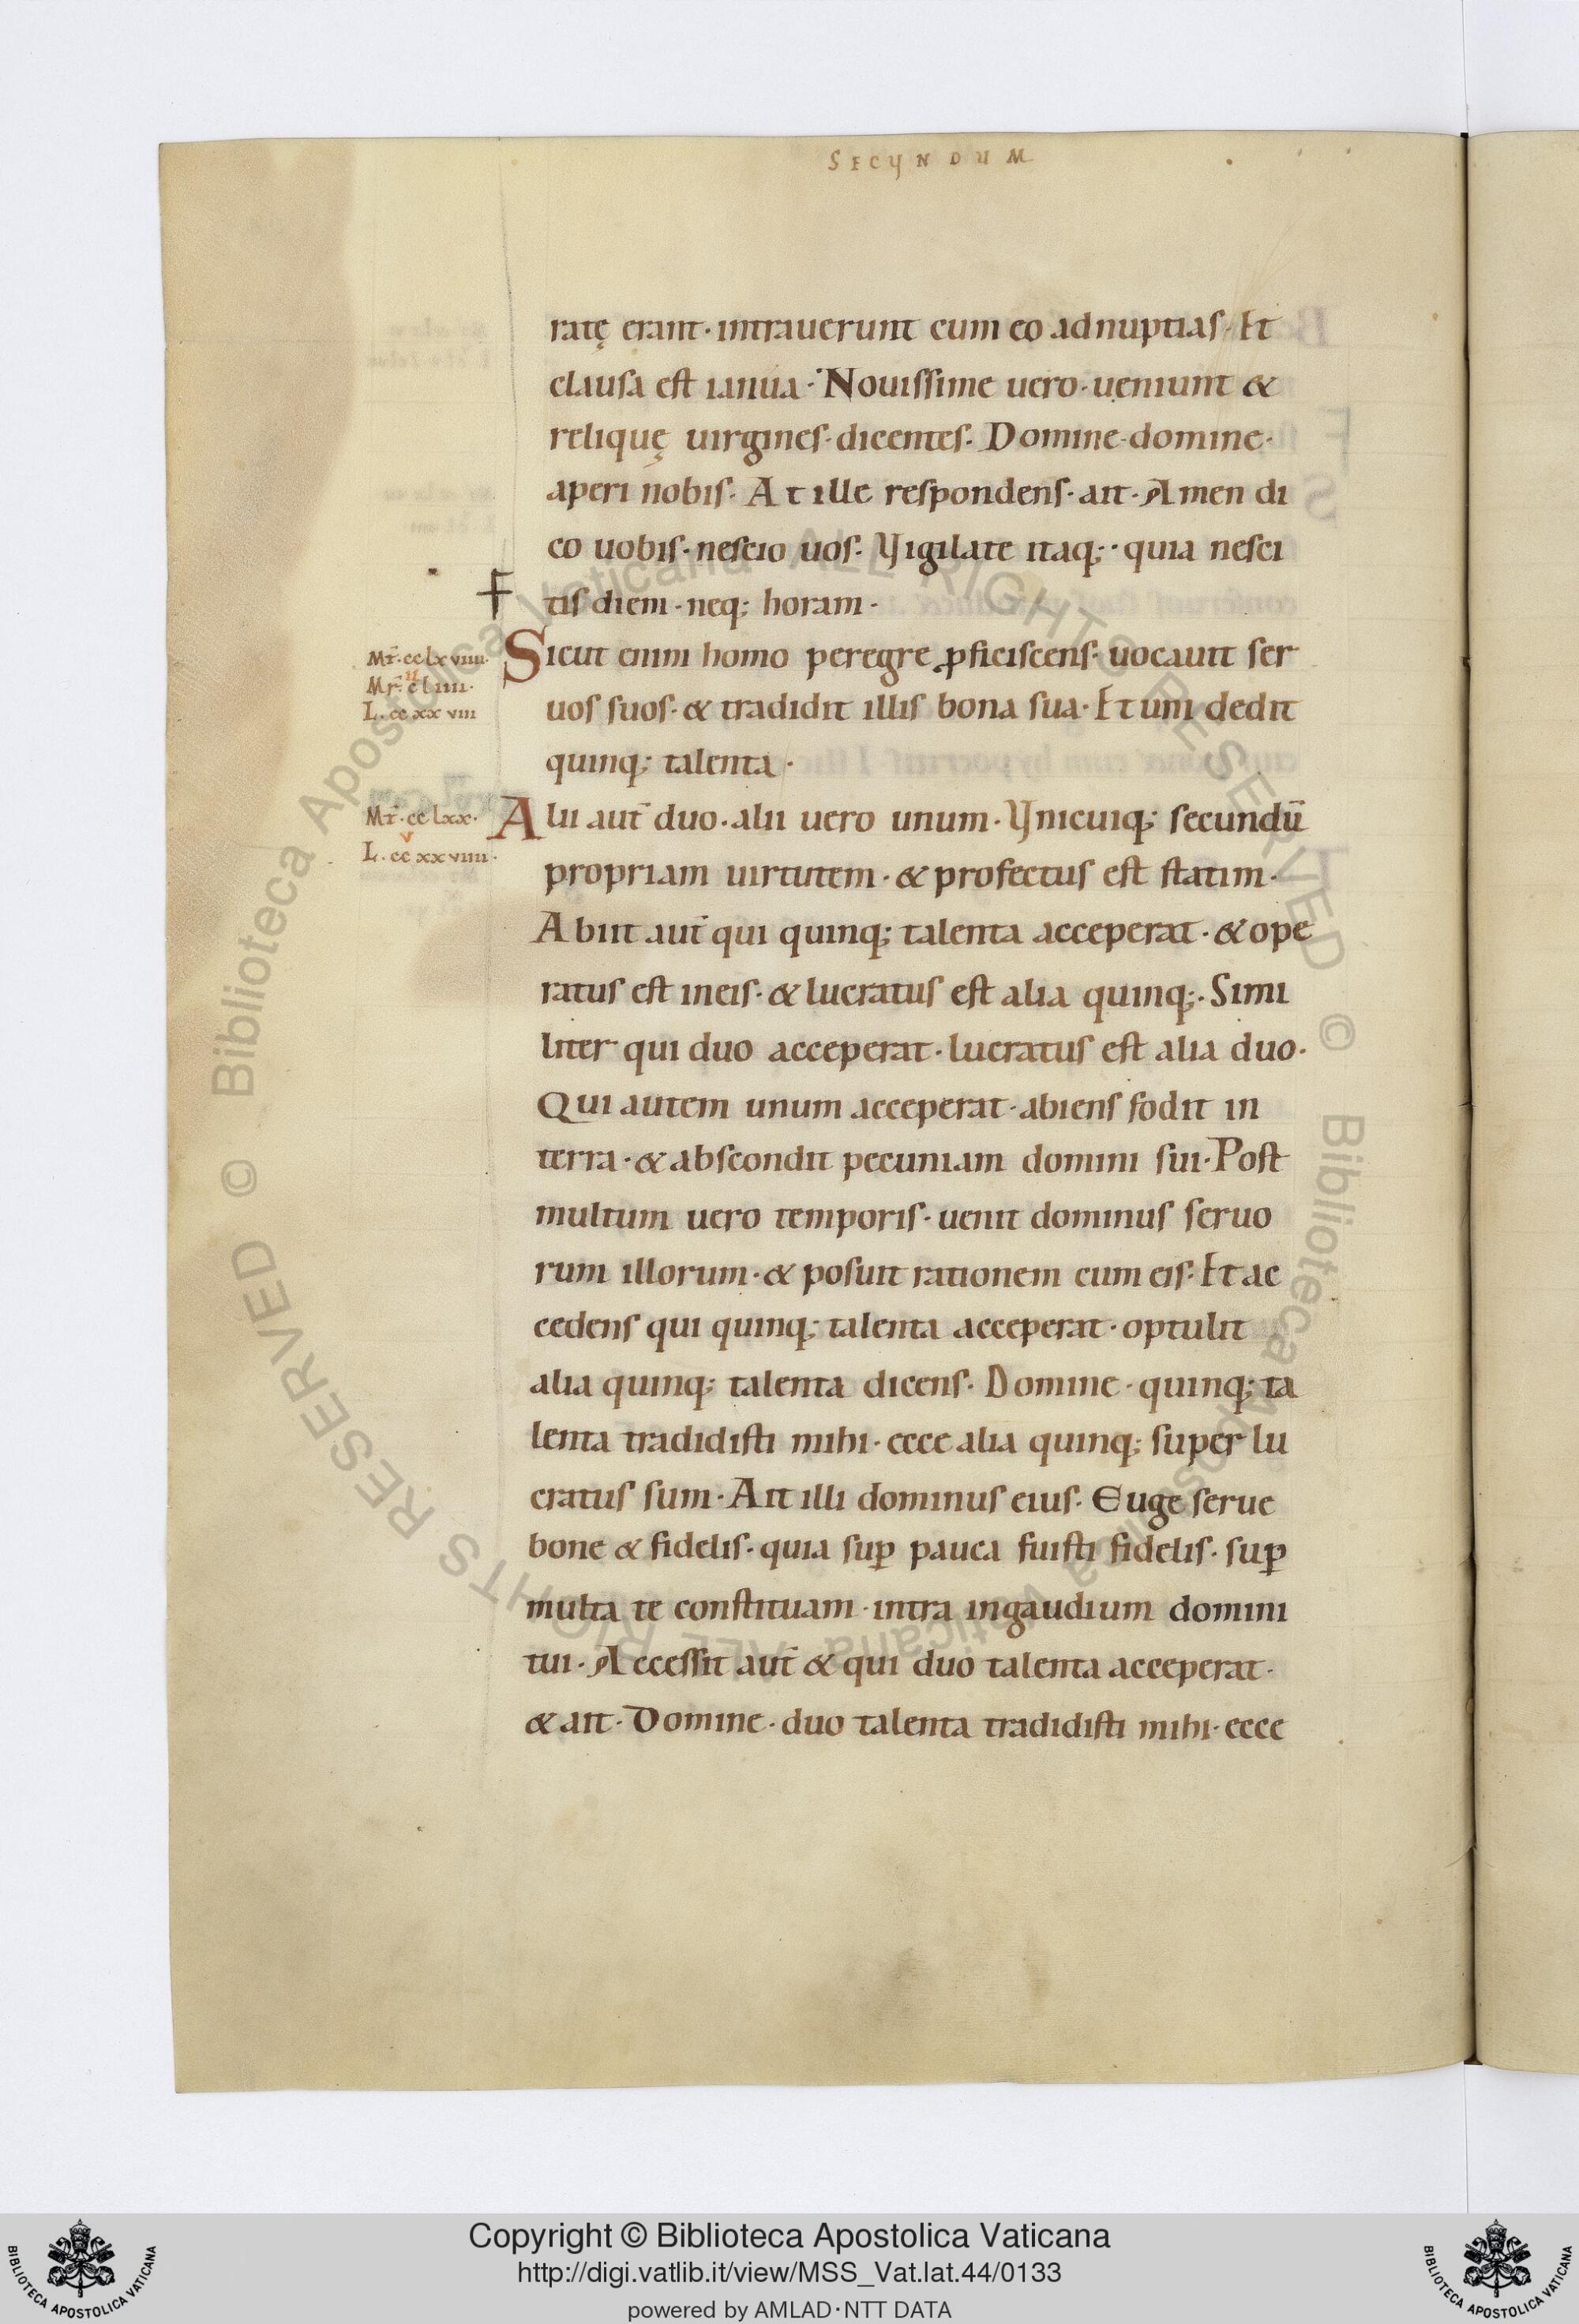 SECUNDUM
ratę erant · intrauerunt cum eo ad nuptias · Et
clausa est ianua · Nouissime uero · ueniunt &
reliquę uirgines · dicentes · Domine · domine ·
aperi nobis · At ille respondens · ait · Amen di
co uobis · nescio uos · Vigilate itaq; · quia nesci
tis diem · neq; horam ·
Mt̄ · cclxviiii ·
Mr̄ · cliiii ·
L · ccxxviii
Sicut enim homo peregre ꝓficiscens · uocauit ser
uos suos · & tradidit illis bona sua · Et uni dedit
quinq; talenta ·
Mt̄ · cclxx ·
L · ccxxviiii ·
Alii aut̄ duo · alii uero unum · Vnicuiq; secundū
propriam uirtutem · & profectus est statim ·
Abiit aut̄ qui quinq; talenta acceperat · & ope
ratus est in eis · & lucratus est alia quinq; · Simi
liter qui duo acceperat · lucratus est alia duo ·
Qui autem unum acceperat · abiens fodit in
terra · & abscondit pecuniam domini sui · Post
multum uero temporis · uenit dominus seruo
rum illorum · & posuit rationem cum eis · Et ac
cedens qui quinq; talenta acceperat · optulit
alia quinq; talenta dicens · Domine · quinq; ta
lenta tradidisti mihi · ecce alia quinq; super lu
cratus sum · Ait illi dominus eius · Euge serue
bone & fidelis · quia suꝑ pauca fuisti fidelis · suꝑ
multa te constituam · intra in gaudium domini
tui · Accessit aut̄ & qui duo talenta acceperat ·
& ait · Domine · duo talenta tradidisti mihi · ecce
© Biblioteca Apostolica Vaticana ALL RIGHTS RESERVED © Biblioteca Apostolica Vaticana ALL RIGHTS RESERVED
Copyright © Biblioteca Apostolica Vaticana
http://digi.vatlib.it/view/MSS_Vat.lat.44/0133
powered by AMLAD·NTT DATA
BIBLIOTECA APOSTOLICA VATICANA
BIBLIOTECA APOSTOLICA VATICANA